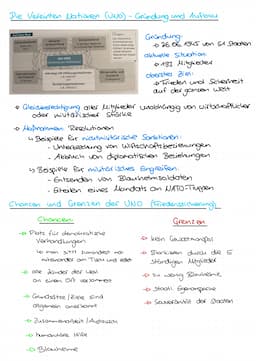 Die Vereinten Nationen (UNO) - Gründung und Aufbau
Gründung:
→ 26.06.1945 von 51 Staaten
aktuelle Situation:
→ 193 Mitglieder
oberstes Ziel:
→ Frieden und Sicherheit
auf der ganzen Welt
→ Gleichberechtigung aller Mitglieder unabhängig von wirtschaftlicher
oder militärischer Stärke
→ Maßnahmen: Resolutionen
↳ Beispiele für nichtmilitärische Sanktionen:
- Unterbrechung von Wirtschaftsbeziehungen
- Abbruch von diplomatischen Beziehungen
↳ Beispiele für militärisches Eingreifen:
- Entsenden von Blauhelmsoldaten
- Erteilen eines Mandats an NATO-Truppen
Chancen und Grenzen der UNO (Friedenssicherung)
Chancen:
→ Platz für demokratische
Verhandlungen
↳ man sitzt zumindest mal
miteinander am Tisch und redet
→ alle Länder der Welt
an einem Ort versammelt
→ Grundsätze/Ziele sind
allgemein anerkannt
→ Zusammenarbeit/Austausch
→ humanitäre Hilfe
→ Blauhelme
Grenzen
→ kein Gewaltmonopol
→ Blockieren durch die 5
ständigen Mitglieder
→ zu wenig Blauhelme
→ Staatl. Eigeninteresse
→ Souveränität der Staaten